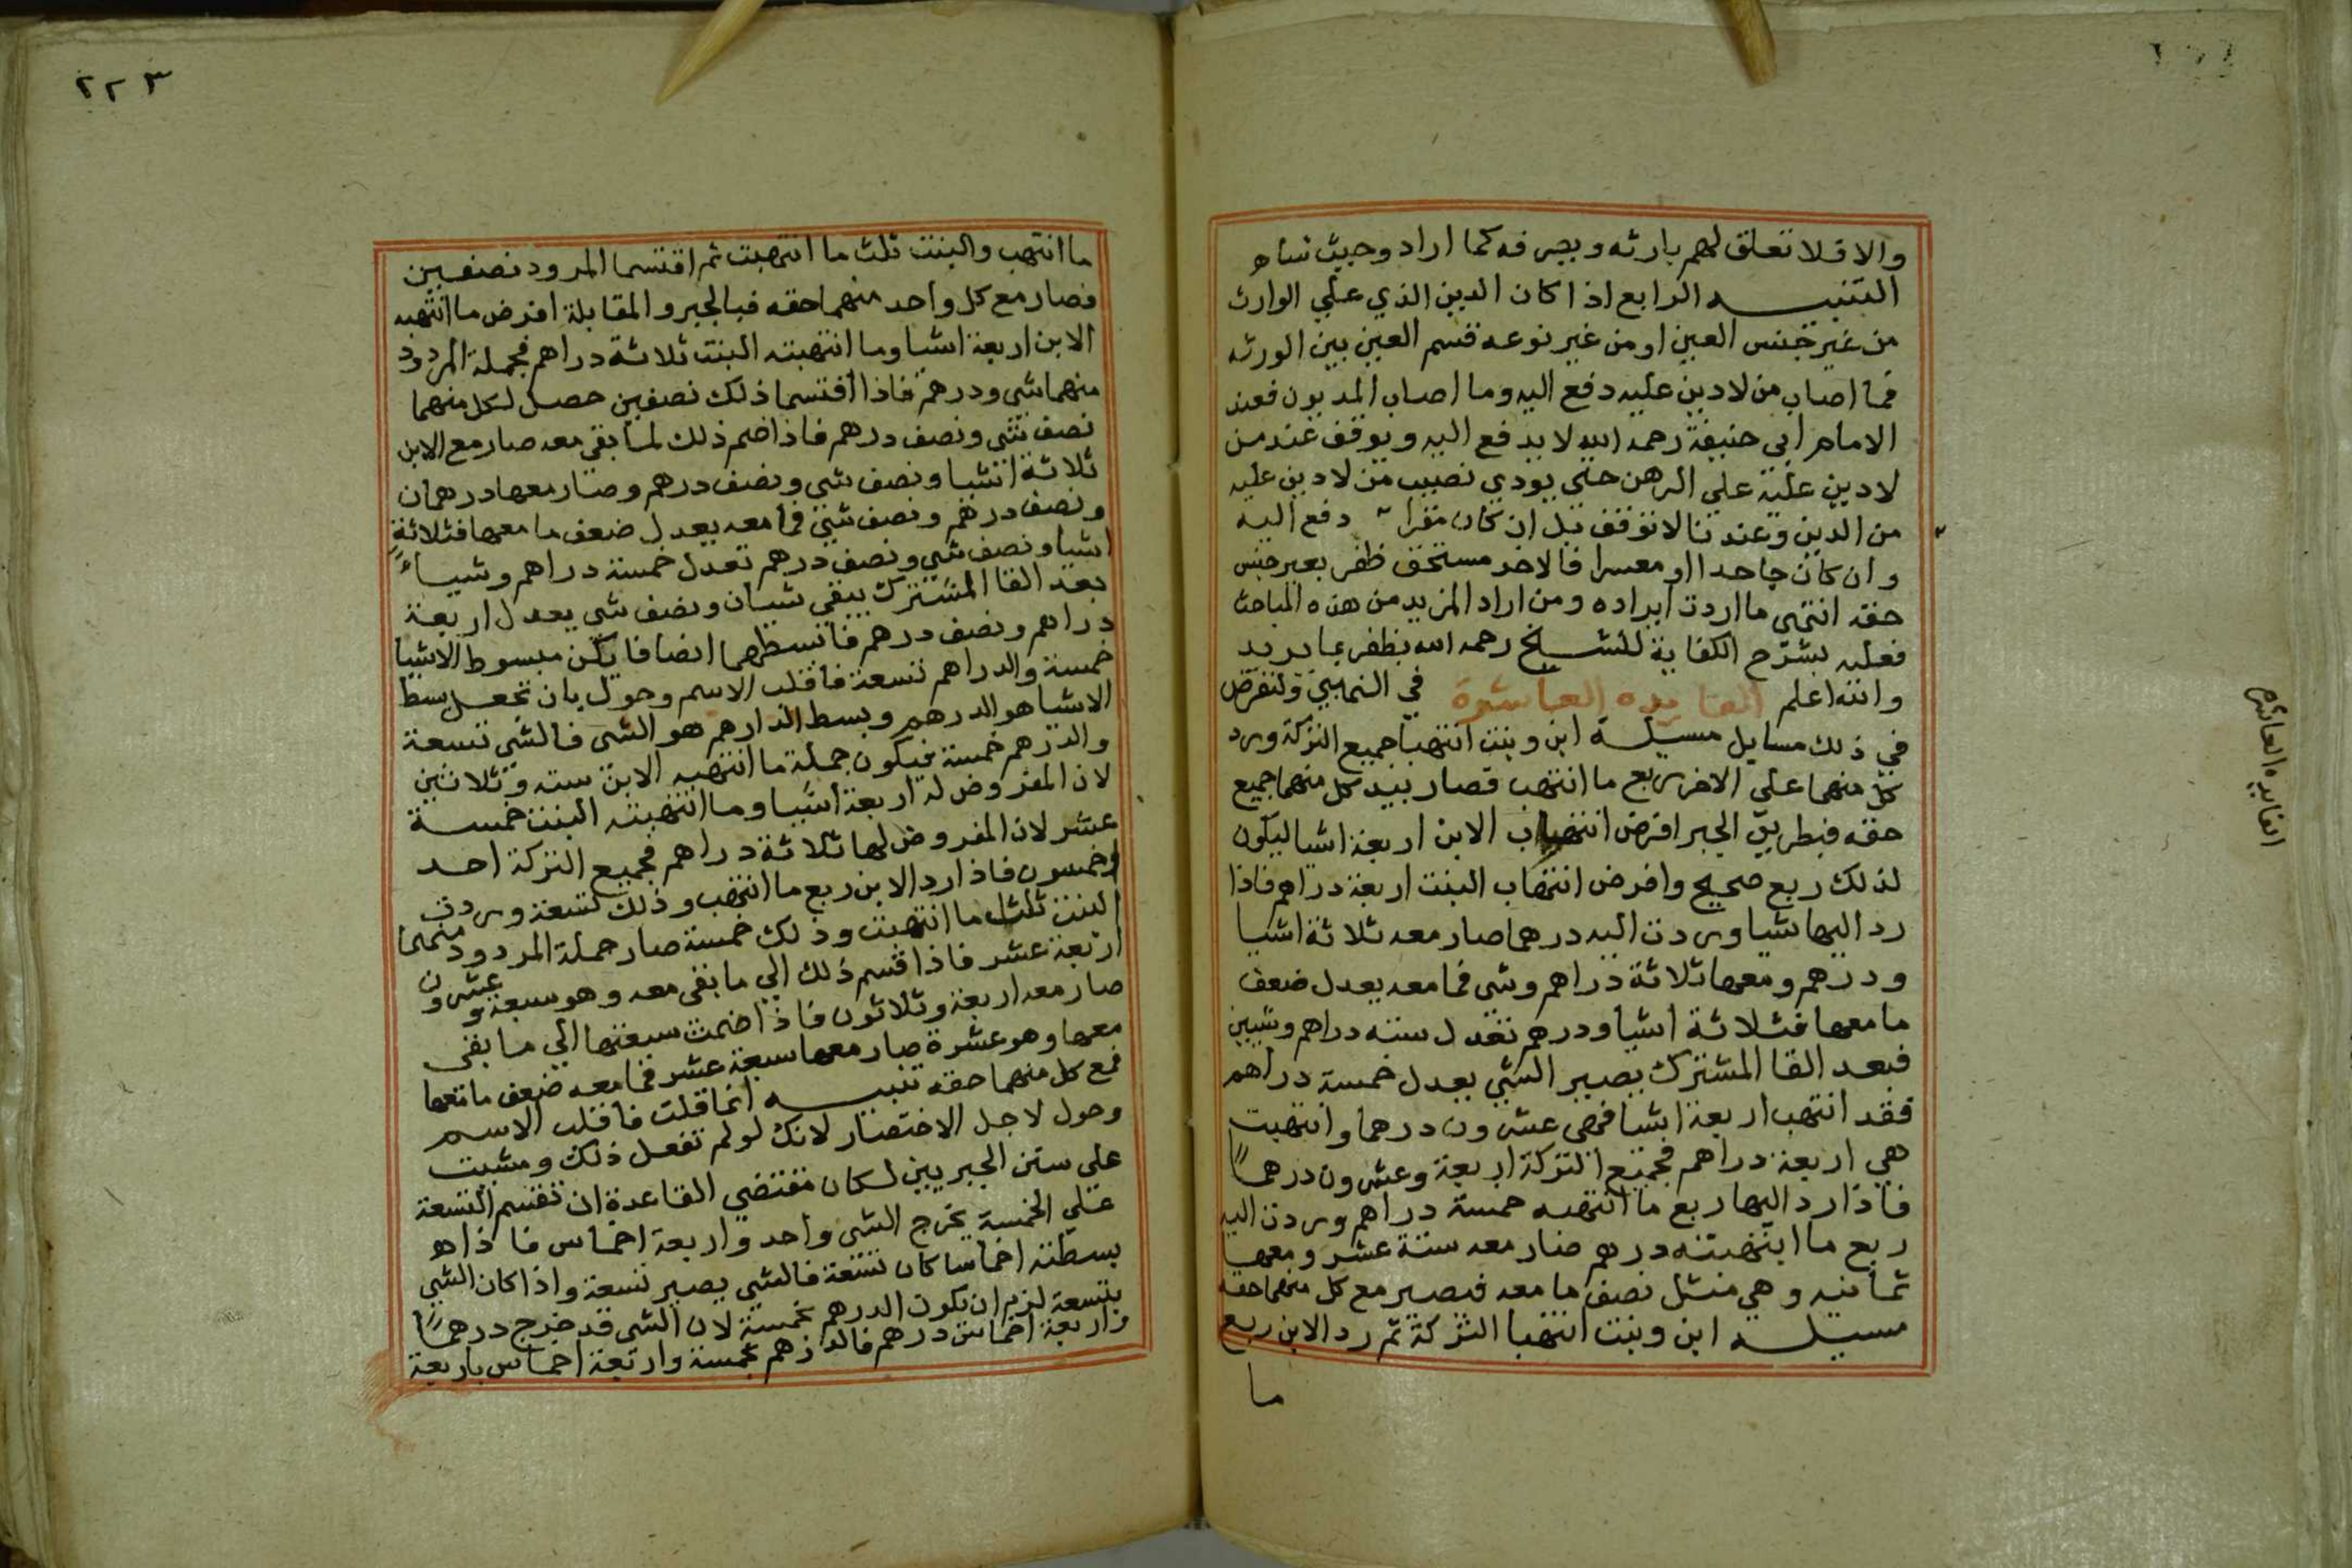 والا فلا تعلق لهم بارثه ويصرفه كما اراد وحيث شاه
التنبيه الرابع اذا كان الدين الذي علي الوارث
من غير جنس العين او من غير نوعه قسم العين بين الورثه
فما اصاب من لا دين عليه دفع اليه وما اصاب المديون فعند
الامام ابي حنيفة رحمه الله لا يدفع اليه ويوقف عند من
لا دين عليه علي الرهن حتي يودي نصيب من لا دين عليه
من الدين وعندنا لا توقف بل ان كان مقرا دفع اليه
وان كان جاحدا او معسرا فالاخر مستحق ظفر بغير جنس
حقه انتهي ما اردت ايراده ومن اراد المزيد من هذه المباحث
فعليه بشرح الكفاية للشيخ رحمه الله يظفر بما يريد
والله اعلم الفايده العاشرة في النهابين ولنفرض
في ذلك مسايل مسيلة ابن وبنت انتهبا جميع التركة ورد
كل منهما علي الاخر ربع ما انتهب فصار بيد كل منهما جميع
حقه فبطريق الجبر افرض انتهاب الابن اربعة اشيا ليكون
لذلك ربع صحيح وافرض انتهاب البنت اربعة دراهم فاذا
رد اليها شيا وردت اليه درهما صار معه ثلاثة اشيا
ودرهم ومعها ثلاثة دراهم وشي فما معه يعدل ضعف
ما معها فثلاثة اشيا ودرهم تعدل سته دراهم وشيين
فبعد القا المشترك يصير الشي يعدل خمسة دراهم
فقد انتهب اربعة اشيا فهي عشرون درهما وانتهبت
هي اربعة دراهم فجميع التركة اربعة وعشرون درهماً
فاذا رد اليها ربع ما انتهبه خمسة دراهم وردت اليه
ربع ما انتهبته درهم صار معه ستة عشر ومعها
ثمانيه وهي مثل نصف ما معه فيصير مع كل منهما حقه
مسيله ابن وبنت انتهبا التركة ثم رد الابن ربع
ما
الفايده العاشره
٢٢٣
ما انتهب والبنت ثلث ما انتهبت ثم اقتسما المردود نصفين
فصار مع كل واحد منهما حقه فبالجبر والمقابلة افرض ما انتهبه
الابن اربعة اشيا وما انتهبته البنت ثلاثة دراهم فجملة المردود
منهما شي ودرهم فاذا اقتسما ذلك نصفين حصل لكل منهما
نصف شي ونصف درهم فاذا ضم ذلك لما بقي معه صار مع الابن
ثلاثة اشيا ونصف شي ونصف درهم وصار معها درهمان
ونصف درهم ونصف شي فما معه يعدل ضعف ما معها فثلاثة
اشيا ونصف شي ونصف درهم تعدل خمسة دراهم وشياءً
بعد القا المشترك يبقي شيان ونصف شي يعدل اربعة
دراهم ونصف درهم فابسطهما انصافا يكن مبسوط الاشيا
خمسة والدراهم تسعة فاقلب الاسم وحول بان تجعل بسط
الاشيا هو الدرهم وبسط الدارهم هو الشي فالشي تسعة
والدرهم خمسة فيكون جملة ما انتهبه الابن سته وثلاثين
لان المفروض له اربعة اشيا وما انتهبته البنت خمسة
عشر لان المفروض لها ثلاثة دراهم فجميع التركة احد
وخمسون فاذا رد الابن ربع ما انتهب وذلك تسعة وردت
البنت ثلث ما انتهبت وذلك خمسة صار جملة المردود منهما
اربعة عشر فاذا قسم ذلك الي ما بقي معه وهو سبعة وعشرون
صار معه اربعة وثلاثون فاذا ضمت سبعتها الي ما بقي
معها وهو عشرة صار معها سبعة عشر فما معه ضعف ما معها
فمع كل منهما حقه تنبيه انما قلت فاقلب الاسم
وحول لاجل الاختصار لانك لو لم تفعل ذلك ومشيت
علي سنن الجبريين لكان مقتضي القاعدة ان تقسم التسعة
علي الخمسة يخرج الشي واحد واربعة اخماس فاذا هو
بسطته اخماسا كان تسعة فالشي يصير تسعة واذا كان الشي
بتسعة لزم ان يكون الدرهم بخمسة لان الشي قد خرج درهماً
واربعة اخماس درهم فالدرهم بخمسة واربعة اخماس باربعة